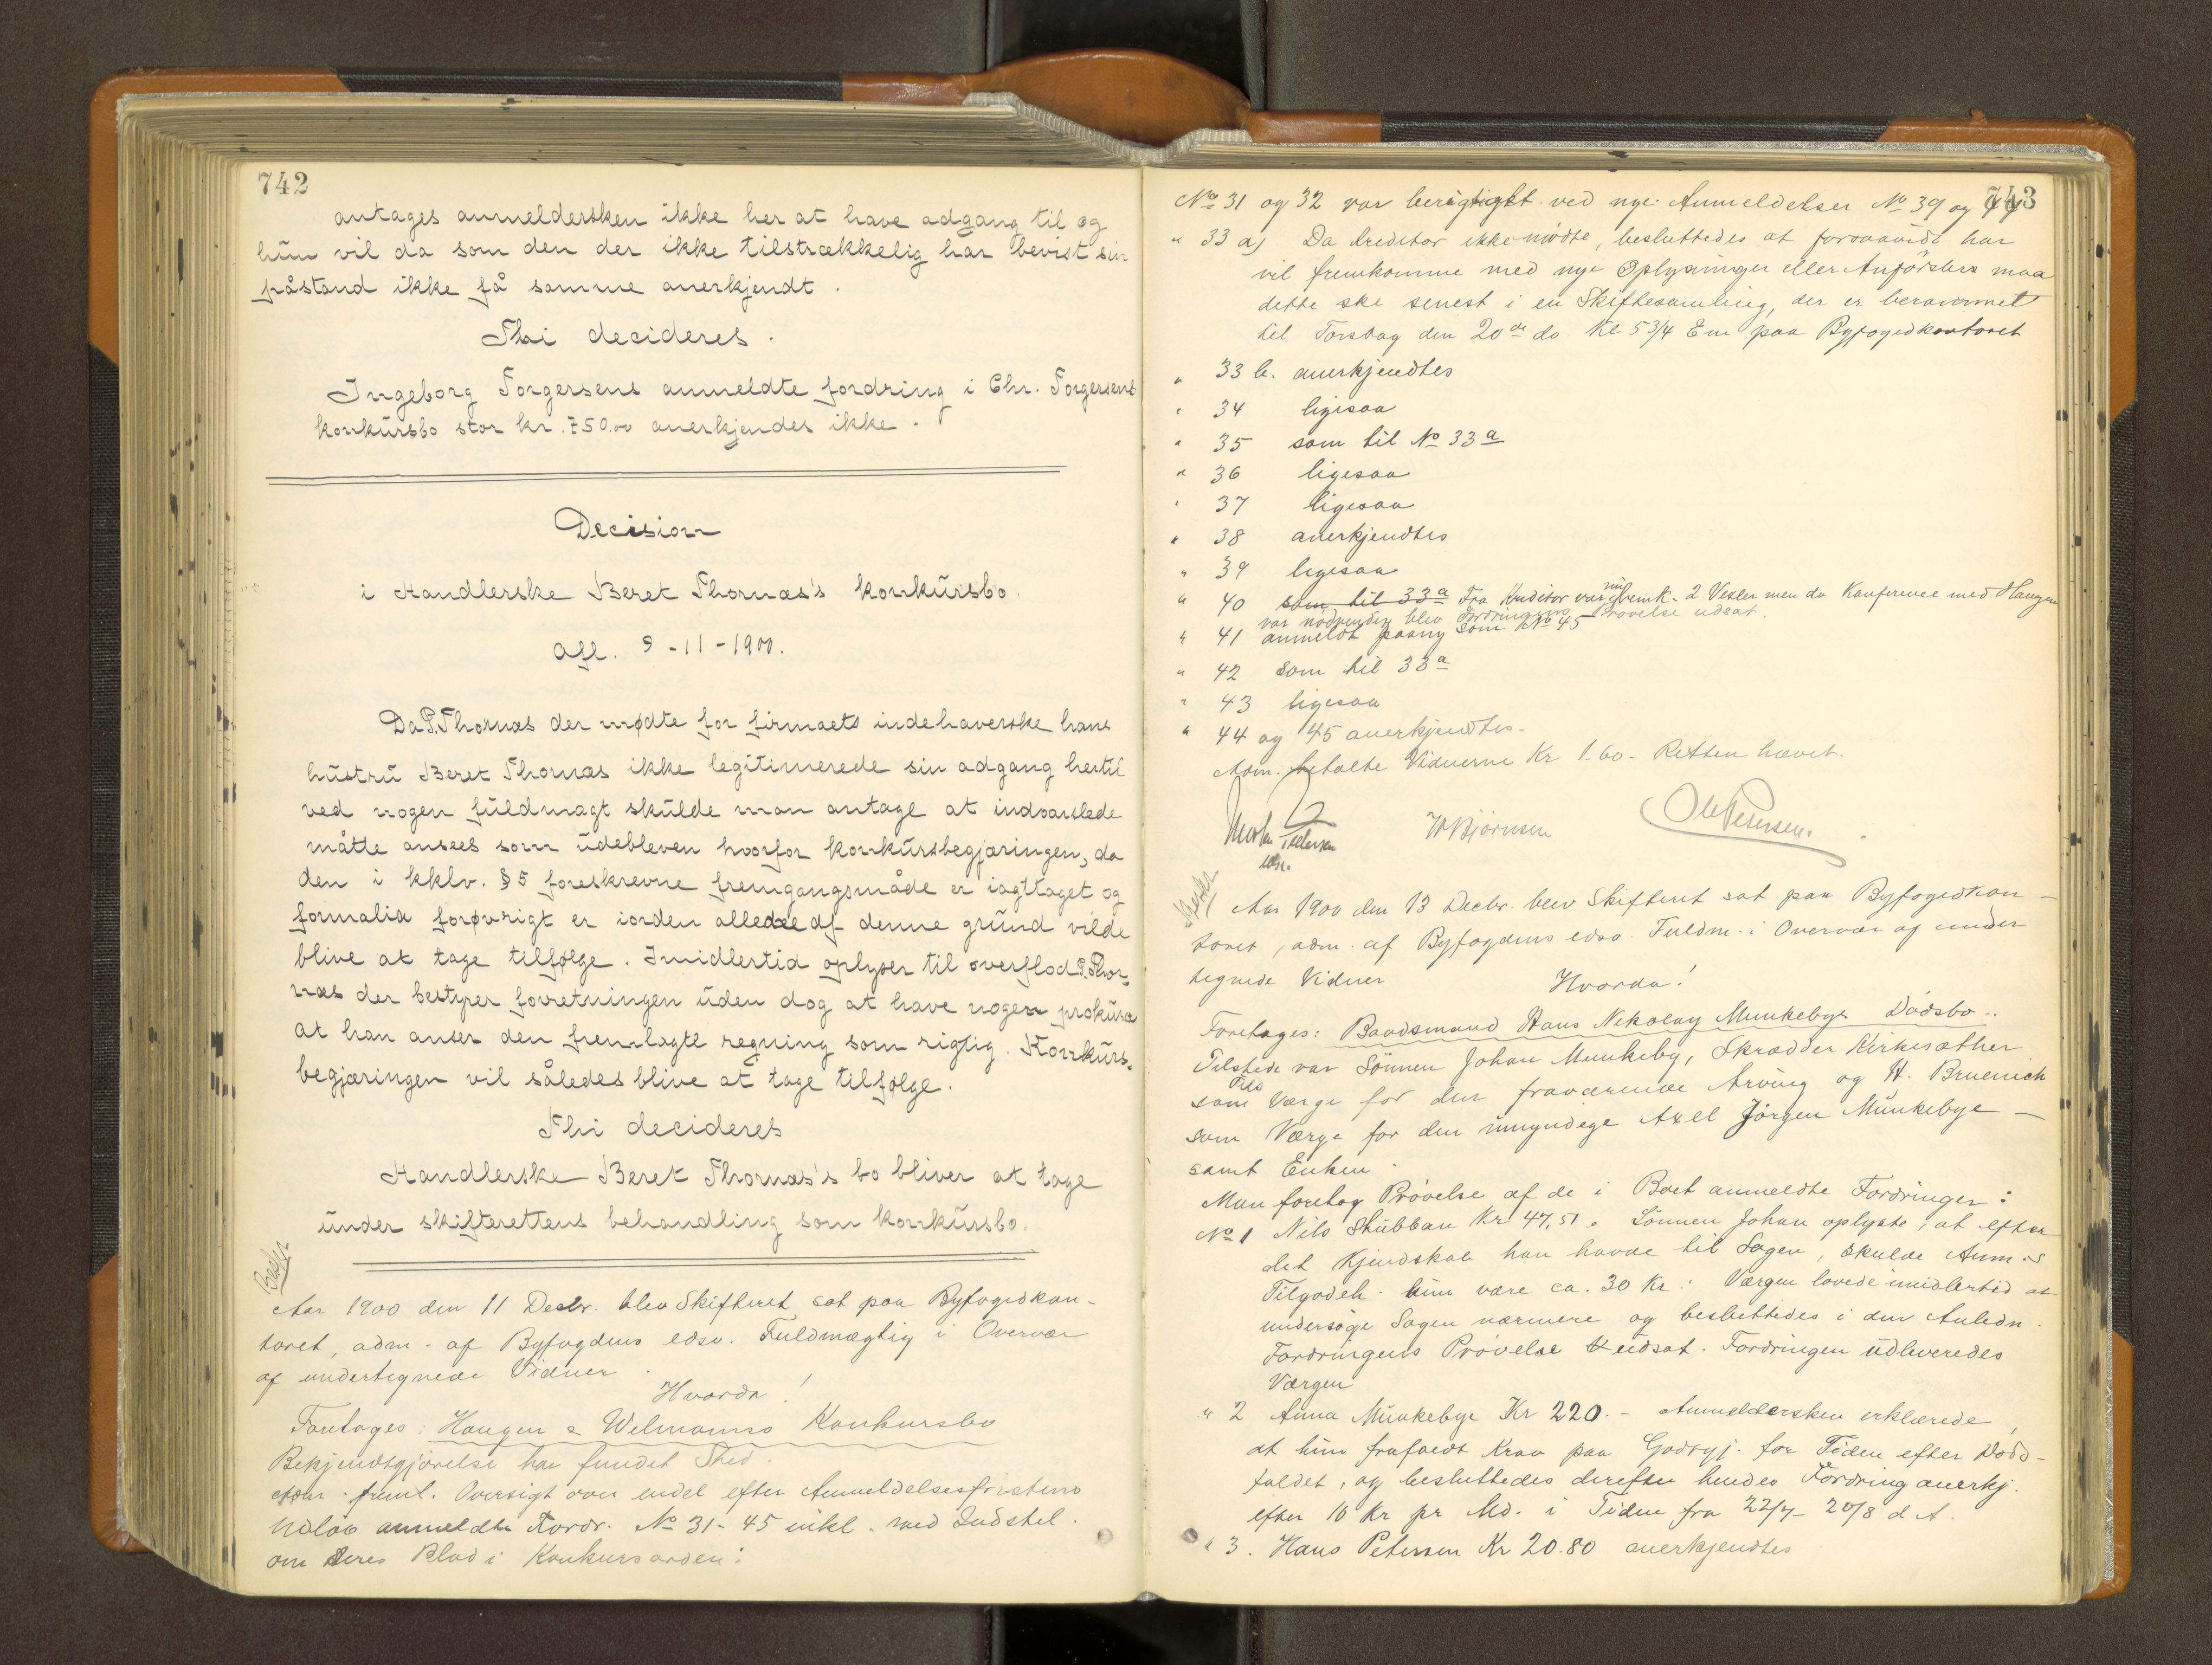 742
antages anmeldersken ikke her at have adgang til og
hun vil da som den der ikke tilstrækkelig har bevist sin
påstand ikke få samme anerkjendt.
Thi decideres.
Ingeborg Torgersens anmeldte fordring i Chr. Torgersens
konkursbo stor kr. 750.00 anerkjendes ikke.
Decision
i Handlerske Beret Thornæs's konkursbo.
afs. 9-11-1900.
Da P. Thornæs der mødte for firmaets indehaverske hans
hustru Beret Thornæs ikke legitimerede sin adgang hertil
ved nogen fuldmagt skulde man antage at indvarslede
måtte ansees som udebleven hvorfor konkursbegjæringen, da
den i kklv. §5 foreskrevne fremgangsmåde er iagttaget og
formalia forøvrigt er iorden allerede af denne grund vilde
blive at tage tilfølge. Imidlertid oplyser til overflod P. Thor-
næs der bestyrer forretningen uden dog at have nogen prokura
at han anser den fremlagte regning som rigtig. Konkurs-
begjæringen vil således blive at tage tilfølge.
Thi decideres
Handlerske Beret Thornæs's bo bliver at tage
under skifterettens behandling som konkursbo.
Aar 1900 den 11 Decbr. blev Skifteret sat paa Byfogedkon-
toret, adm. af Byfogdens edsv. Fuldmægtig i Overvær
af undertegnede Vidner.
Hvorda!
Foretages: Haugen & Welmanns Konkursbo
Bekjendtgjørelse har fundet Sted.
Adm. freml. Oversigt over endel efter Anmeldelsesfristens
Udløb anmeldte Fordr. No 31-45 inkl. med Indstil.
om deres Plads i Konkursorden:
743
No 31 og 32 var berigtiget ved nye Anmeldelser No 39 og 44
" 33 a) Da Kreditor ikke mødte, besluttedes at forsaavidt han
vil fremkomme med nye Oplysninger eller Anførsler maa
dette ske senest i en Skiftesamling, der er berammet
til Torsdag den 20de ds. Kl 5 3/4 Em paa Byfogedkontoret
" 33 b. anerkjendtes
" 34 ligesaa
" 35 som til No 33a
" 36 ligesaa
" 37 ligesaa
" 38 anerkjendtes
" 39 ligesaa
" 40 som til 33a Fra Kreditor var nu fremk. 2 Vexler men da Konference med Haugen
var nødvendig blev Fordringens Prøvelse udsat.
" 41 anmeldt paany som No 45
" 42 som til 33a
" 43 ligesaa
" 44 og 45 anerkjendtes.
Adm. betalte Vidnerne Kr 1.60 - Retten hævet.
Bjørnsen
Ole Petersen.
Aar 1900 den 13 Decbr. blev Skifteret sat paa Byfogedkon-
toret, adm. af Byfogdens edsv. Fuldm. i Overvær af under
tegnede Vidner
Hvorda!
Foretages: Baadsmand Hans Nikolay Munkebys Dødsbo.
Tilstede var Sønnen Johan Munkeby, Skrædder Kirkesæther
som Værge for den fraværende Arving og H. Bruenich
som Værge for den umyndige Axel Jørgen Munkebye -
samt Enken.
Man foretog Prøvelse af de i Boet anmeldte Fordringer:
No 1 Nils Stubban Kr 47,51. Sønnen Johan oplyste, at efter
det Kjendskab han havde til Sagen, skulde Anm.s
Tilgodeh. kun være ca. 30 Kr. Værgen lovede imidlertid at
undersøge Sagen nærmere og besluttedes i den Anledn.
Fordringens Prøvelse udsat. Fordringen udleveredes
Værgen
" 2 Anna Munkebye Kr 220.- Anmeldersken erklærede,
at hun frafaldt Krav paa Godtgj. for Tiden efter Døds-
faldet, og besluttedes derefter hendes Fordring anerkj.
efter 10 Kr pr Md. i Tiden fra 22/7 - 20/8 d A.
" 3. Hans Petersen Kr 20.80 anerkjendtes